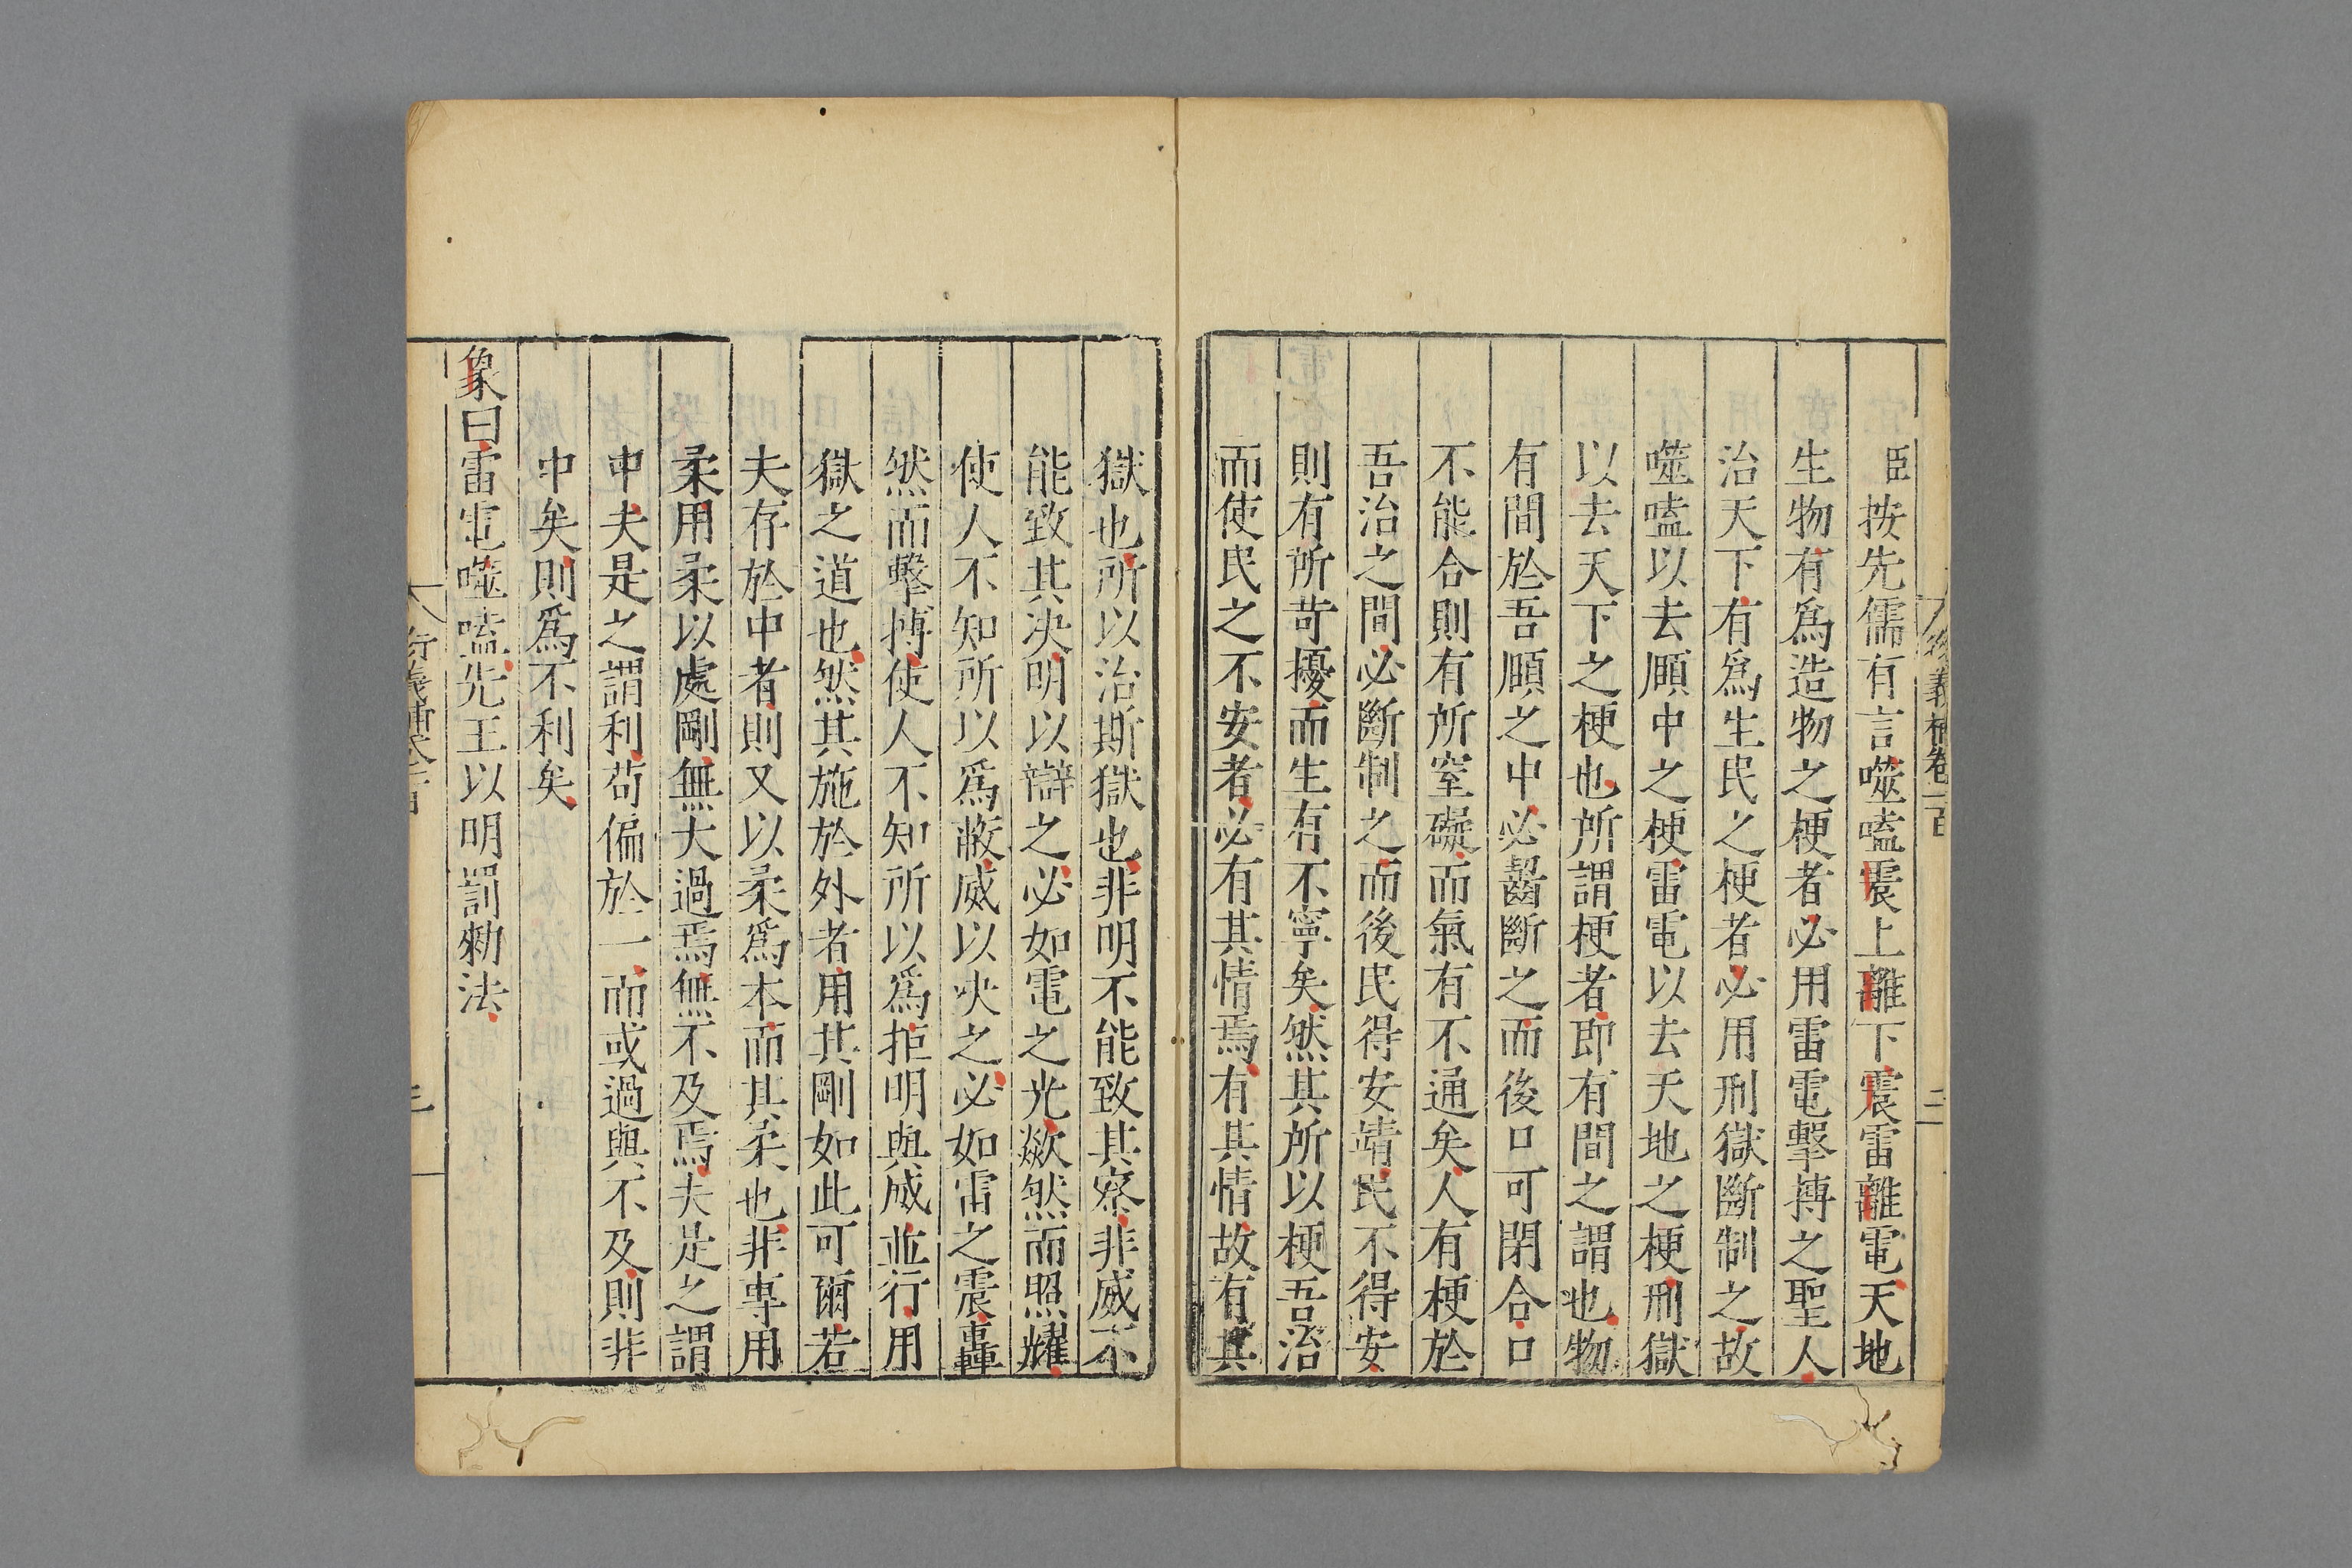 臣按先儒有言噬嗑震上離下震雷離電天地
生物有爲造物之梗者必用雷電擊搏之聖人
治天下有爲生民之梗者必用刑獄斷制之故
噬嗑以去頤中之梗雷電以去天地之梗刑獄
以去天下之梗也所謂梗者即有間之謂也物
有間於吾頤之中必齧斷之而後口可閉合口
不能合則有所窒礙而氣有不通矣人有梗於
吾治之間必斷制之而後民得安靖民不得安
則有所苛擾而生有不寧矣然其所以梗吾治
而使民之不安者必有其情焉有其情故有其
獄也所以治斯獄也非明不能致其察非威不
能致其决明以辯之必如電之光歘然而照耀
使人不知所以爲蔽威以决之必如雷之震轟
然而擊搏使人不知所以爲拒明與威並行用
獄之道也然其施於外者用其剛如此可爾若
夫存於中者則又以柔爲本而其柔也非專用
柔用柔以處剛無大過焉無不及焉夫是之謂
中夫是之謂利苟偏於一而或過與不及則非
中矣則爲不利矣
象曰雷電噬嗑先王以明罰勑法